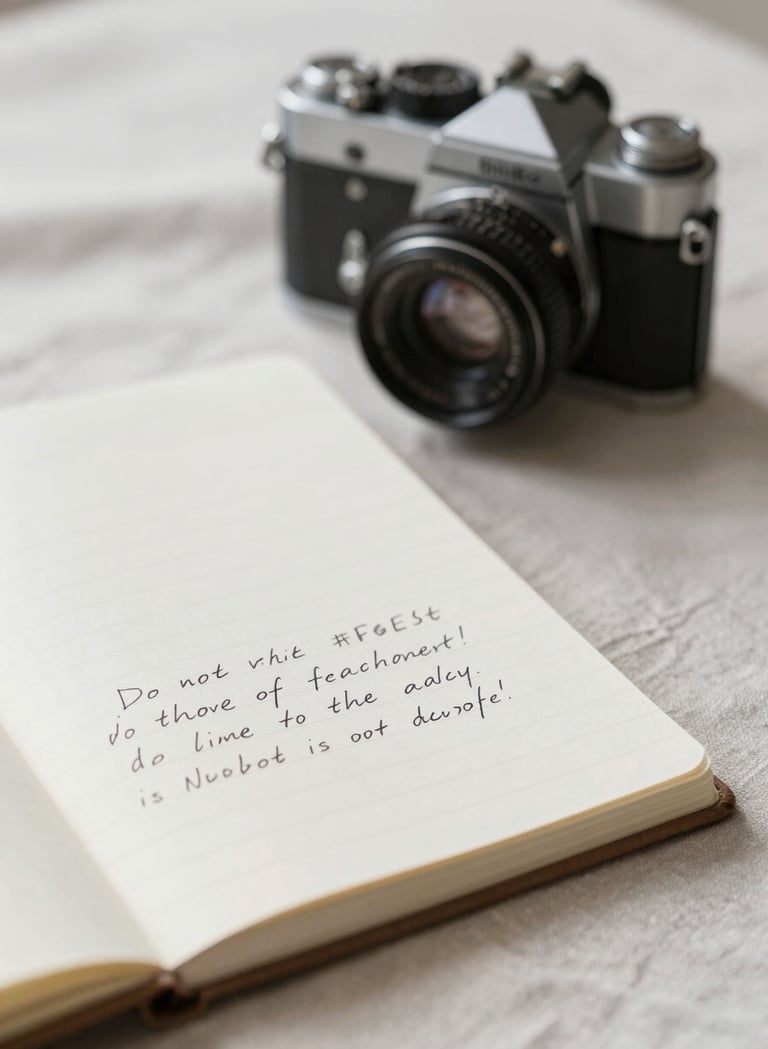 Do not v.hit #FGESt
do thove of feachonert!
do lime to the adcy.
is Nuobot is oot